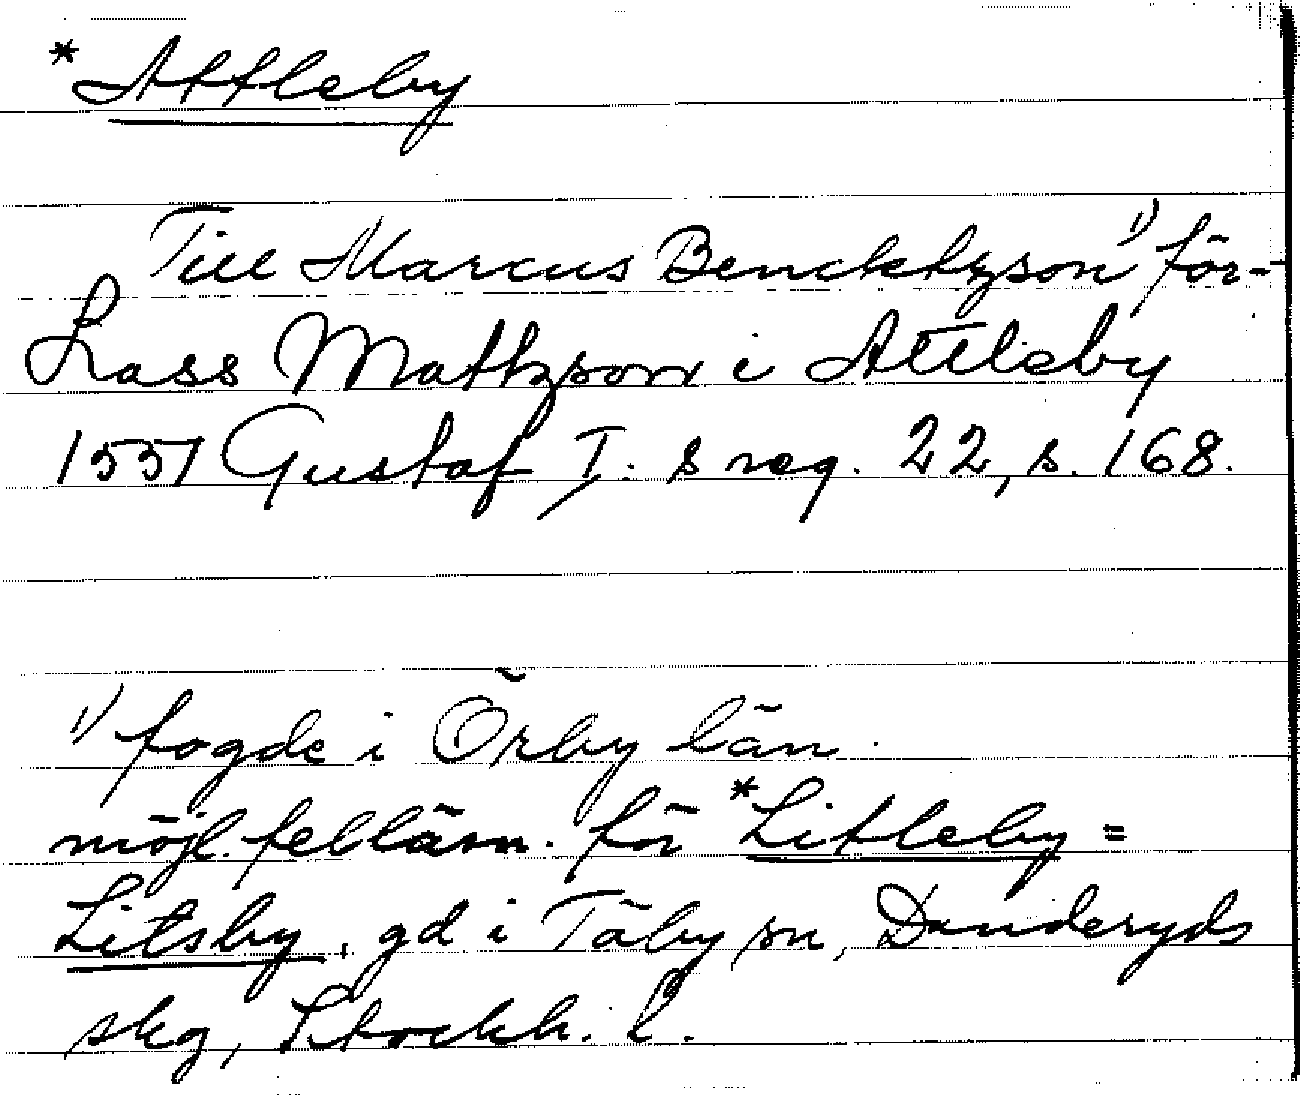 *Attleby
Till Marcus Bencktzson¹⁾ för-
Lass Mattzson i Attleby
1551 Gustaf I:s reg. 22, s. 168.
¹⁾ fogde i Örby län.
möjl. felläsn. för *Litleby =
Litsby, gd i Täby sn, Danderyds
skg, Stockh. l.